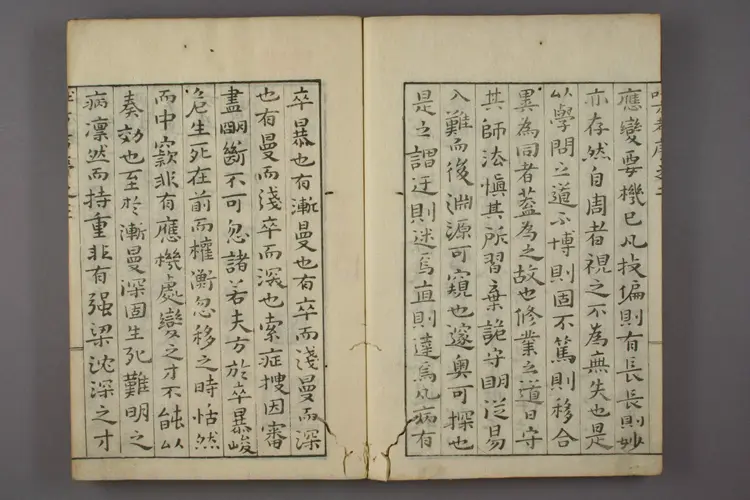 應變要機已凡技偏則有長長則妙
亦存然自周者視之不為無失也是
以學問之道不博則固不篤則移合
異為同者蓋為之故也修業之道日守
其師法慎其所習棄詭守明從易
入難而後淵源可窺也邃奧可探也
是之謂迂則迷焉直則達焉凡病有
卒暴也有漸曼也有卒而淺曼而深
也有曼而淺卒而深也索症搜因審
盡酬斷不可忽諸若夫方於卒暴峻
危生死在前而權衡忽移之時怙然
而中窾非有應機處變之才不能以
奏効也至於漸曼深固生死難明之
病凛然而持重非有强梁沈深之才